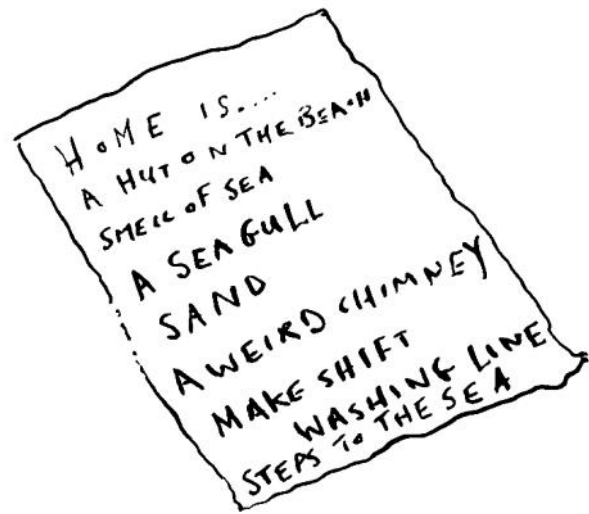 HOME IS....
A HUT ON THE BEACH
SMELL OF SEA
A SEAGULL
SAND
A WEIRD CHIMNEY
MAKE SHIFT
WASHING LINE
STEPS TO THE SEA